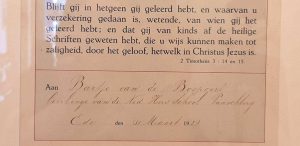 Blijft gij in hetgeen gij geleerd hebt, en waarvan u
verzekering gedaan is, wetende, van wien gij het
geleerd hebt; en dat gij van kinds af de heilige
Schriften geweten hebt, die u wijs kunnen maken tot
zaligheid, door het geloof, hetwelk in Christus Jezus is.
2 Timotheüs 3 : 14 en 15.
Aan Bartje van de
leerlinge van de Ned. Herv. School
Ede, den 31 Maart